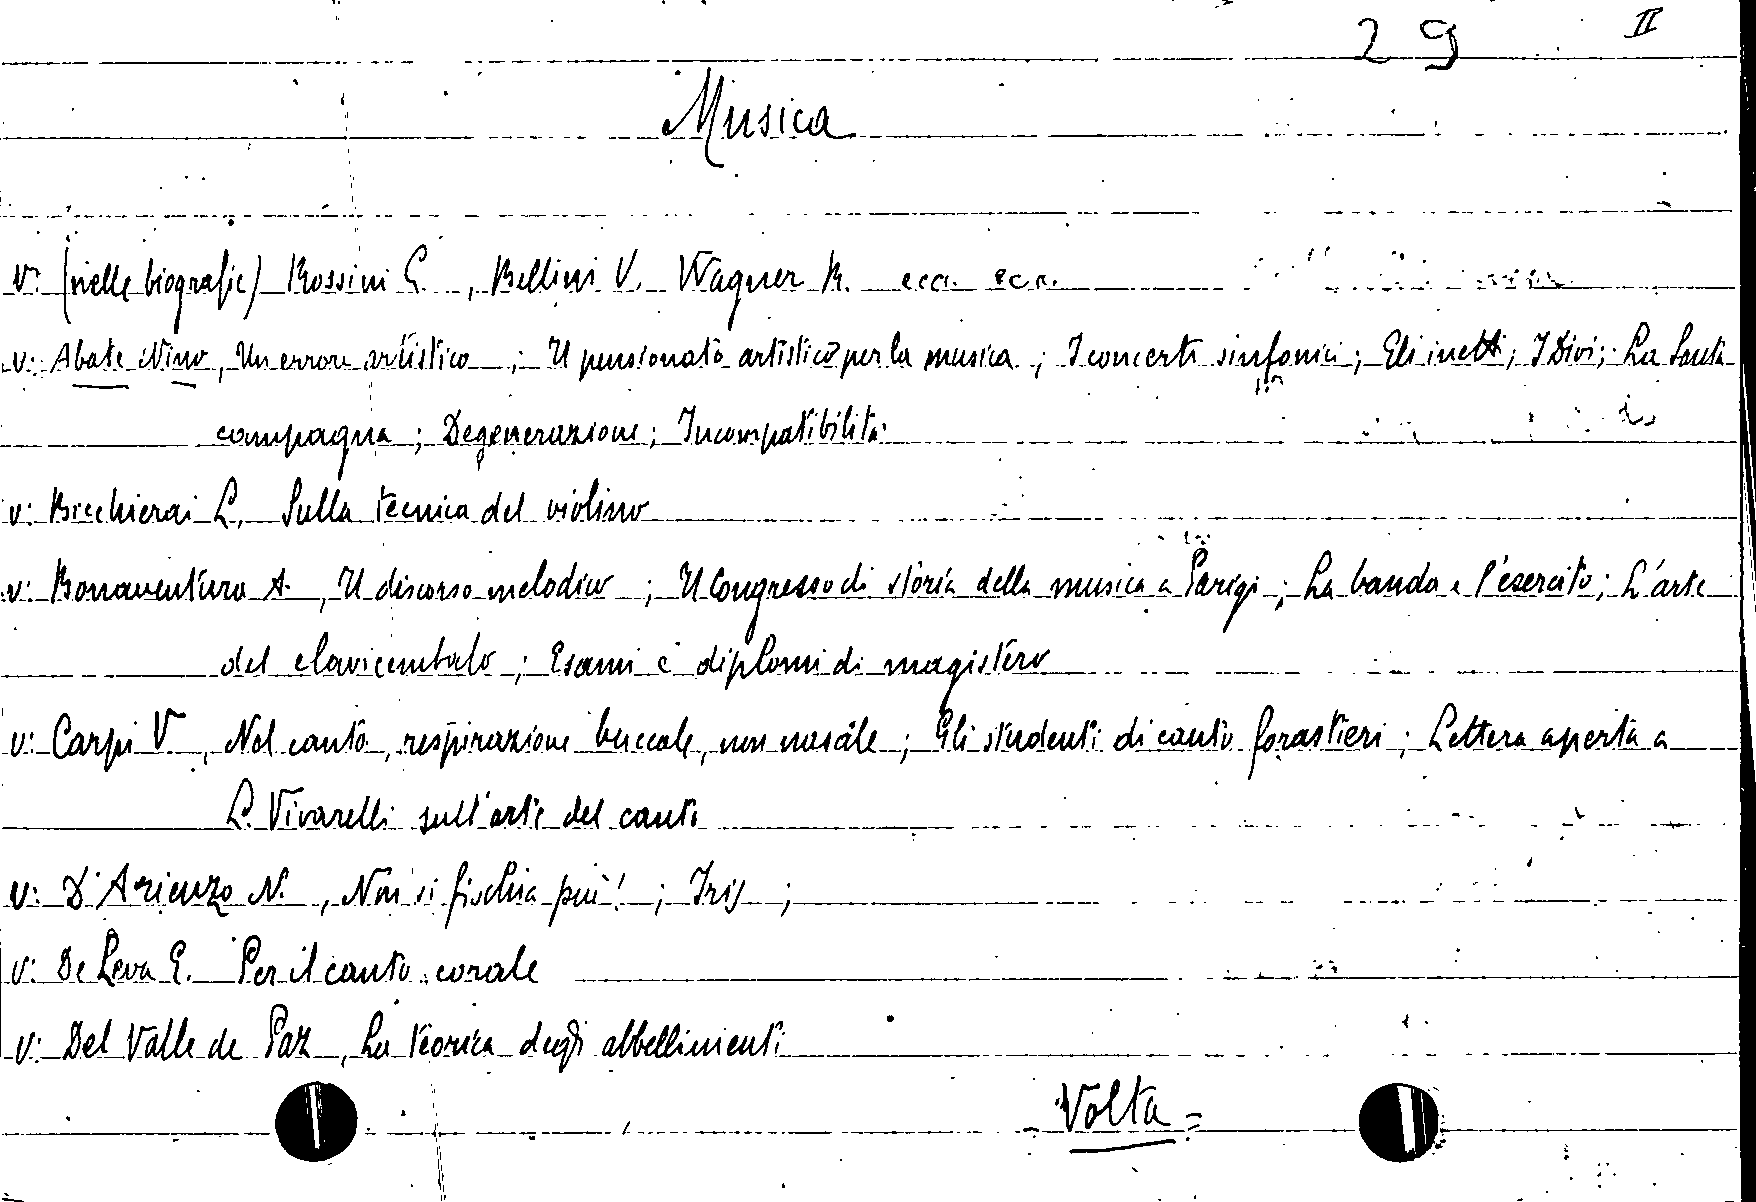 29 II
Musica
v: (nelle biografie) Rossini G. , Bellini V. Wagner R. ecc. ecc.
v: Abate Nino, Un errore artistico ; Il pensionato artistico per la musica ; I concerti sinfonici ; Gli inetti ; I Divi ; La Santa
campagna ; Degenerazione ; Incompatibilità
v: Bicchierai L. Sulla tecnica del violino
v: Bonaventura A. , Il discorso melodico ; Il Congresso di storia della musica a Parigi ; La banda e l'esercito ; L'arte
del clavicembalo ; Esami e diplomi di magistero
v: Carpi V. , Nel canto, respirazione buccale, non nasale ; Gli studenti di canto forastieri ; Lettera aperta a
L. Vivarelli sull'arte del canto
v: D'Arienzo N. , Non si fischia più! ; Iris ;
v: De Leva E. Per il canto corale
v: Del Valle de Paz , La teorica degli abbellimenti
Volta =